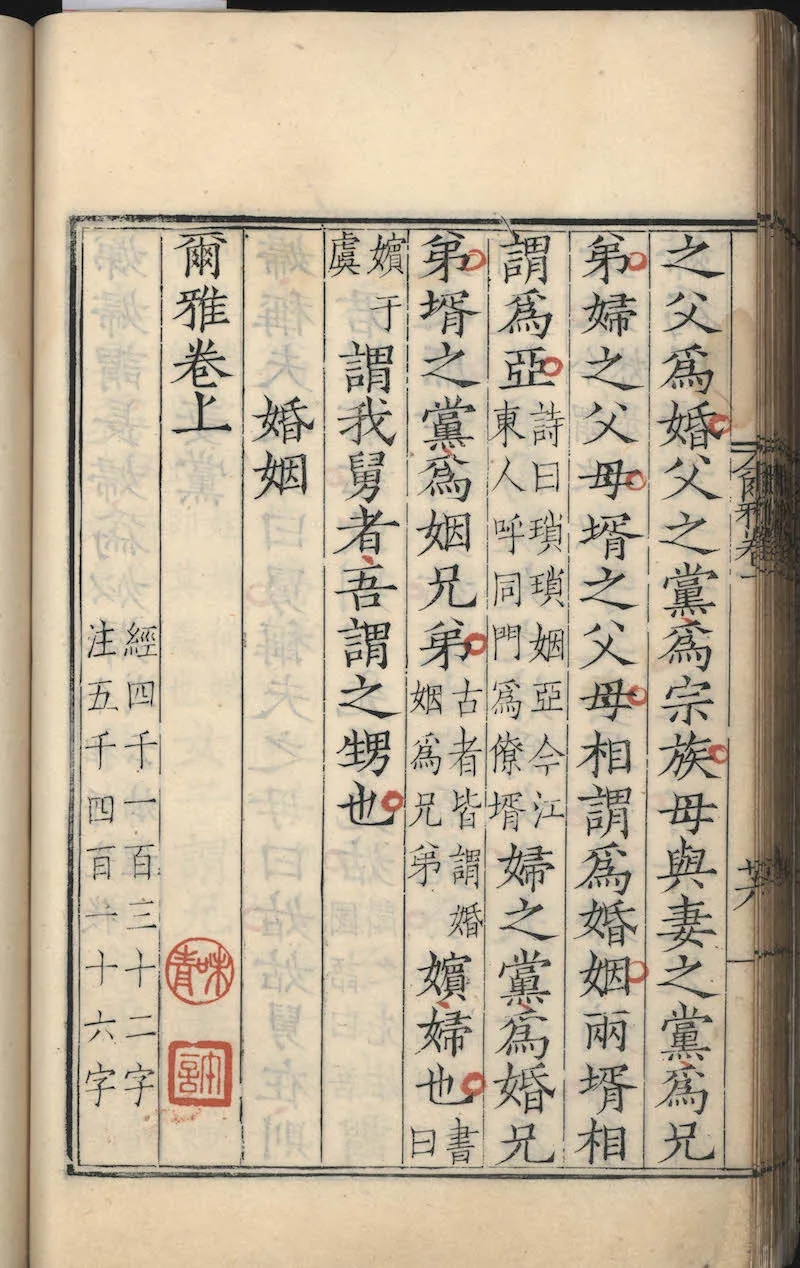 之父爲婚父之黨爲宗族母與妻之黨爲兄
弟婦之父母壻之父母相謂爲婚姻兩壻相
謂爲亞詩曰瑣瑣姻亞今江東人呼同門爲僚壻婦之黨爲婚兄
弟壻之黨爲姻兄弟古者皆謂婚姻爲兄弟嬪婦也書曰
嬪于虞謂我舅者吾謂之甥也
婚姻
爾雅卷上
經四千一百三十二字
注五千四百一十六字